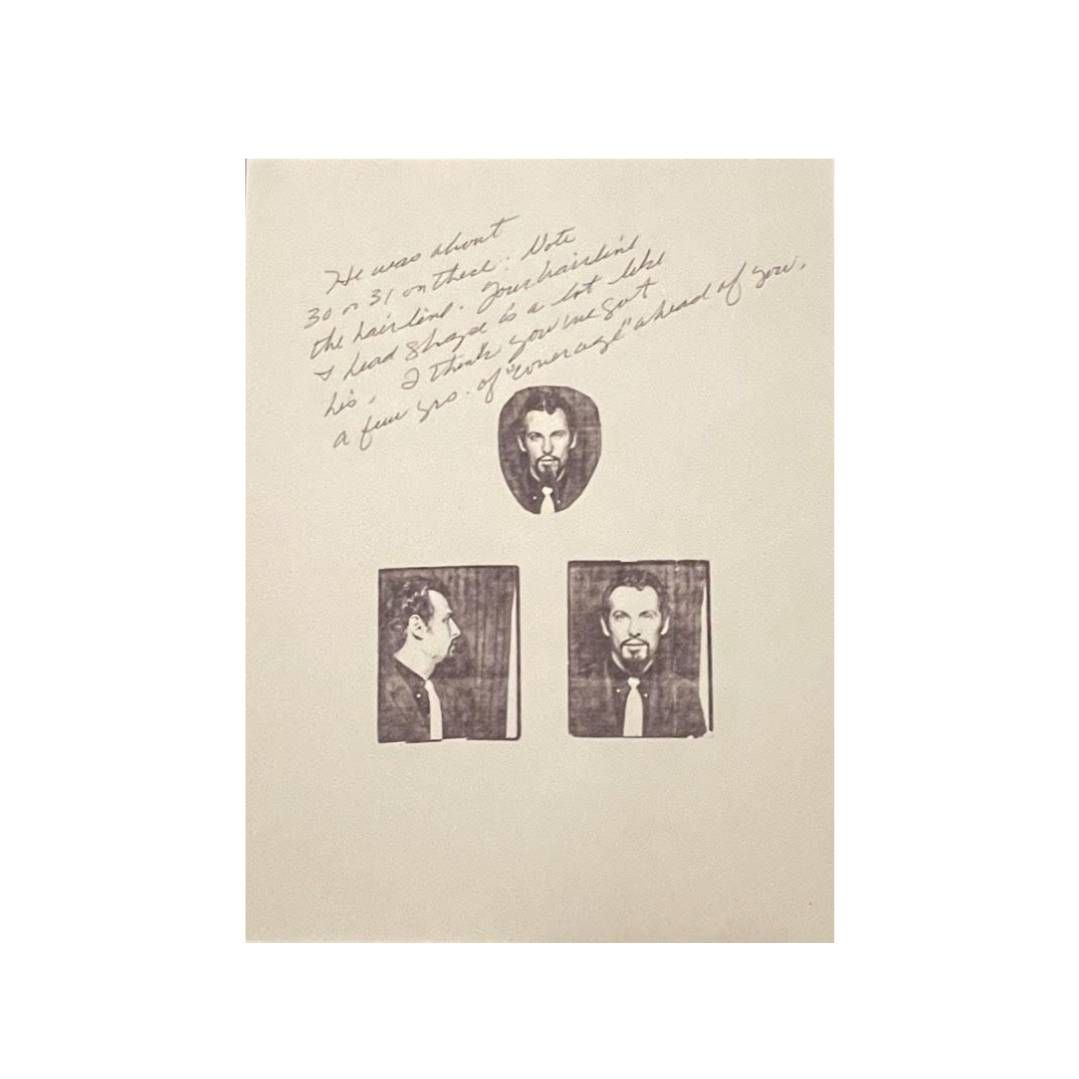 He was about
30 or 31 on these. Note
the hairline. Your hairline
& head shape is a lot like
his. I think you've got
a few yrs. of "coverage" ahead of you.